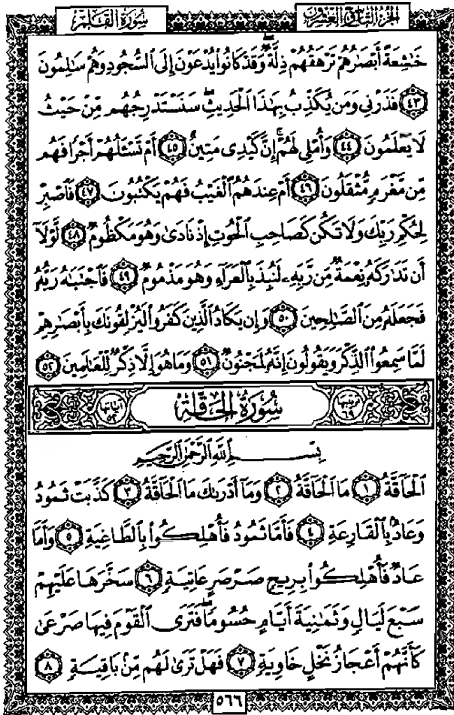 سُورَةُ القَلَمِ
الجُزْءُ التَّاسِعُ وَالعِشْرُونَ
خَٰشِعَةً أَبْصَٰرُهُمْ تَرْهَقُهُمْ ذِلَّةٌ وَقَدْ كَانُوا۟ يُدْعَوْنَ إِلَى ٱلسُّجُودِ وَهُمْ سَٰلِمُونَ
٤٣ فَذَرْنِى وَمَن يُكَذِّبُ بِهَٰذَا ٱلْحَدِيثِ سَنَسْتَدْرِجُهُم مِّنْ حَيْثُ
لَا يَعْلَمُونَ ٤٤ وَأُمْلِى لَهُمْ إِنَّ كَيْدِى مَتِينٌ ٤٥ أَمْ تَسْـَٔلُهُمْ أَجْرًا فَهُم
مِّن مَّغْرَمٍ مُّثْقَلُونَ ٤٦ أَمْ عِندَهُمُ ٱلْغَيْبُ فَهُمْ يَكْتُبُونَ ٤٧ فَٱصْبِرْ
لِحُكْمِ رَبِّكَ وَلَا تَكُن كَصَاحِبِ ٱلْحُوتِ إِذْ نَادَىٰ وَهُوَ مَكْظُومٌ ٤٨ لَّوْلَآ
أَن تَدَٰرَكَهُۥ نِعْمَةٌ مِّن رَّبِّهِۦ لَنُبِذَ بِٱلْعَرَآءِ وَهُوَ مَذْمُومٌ ٤٩ فَٱجْتَبَٰهُ رَبُّهُۥ
فَجَعَلَهُۥ مِنَ ٱلصَّٰلِحِينَ ٥٠ وَإِن يَكَادُ ٱلَّذِينَ كَفَرُوا۟ لَيُزْلِقُونَكَ بِأَبْصَٰرِهِمْ
لَمَّا سَمِعُوا۟ ٱلذِّكْرَ وَيَقُولُونَ إِنَّهُۥ لَمَجْنُونٌ ٥١ وَمَا هُوَ إِلَّا ذِكْرٌ لِّلْعَٰلَمِينَ ٥٢
سُورَةُ الحَاقَّةِ
بِسْمِ ٱللَّهِ ٱلرَّحْمَٰنِ ٱلرَّحِيمِ
ٱلْحَآقَّةُ ١ مَا ٱلْحَآقَّةُ ٢ وَمَآ أَدْرَىٰكَ مَا ٱلْحَآقَّةُ ٣ كَذَّبَتْ ثَمُودُ
وَعَادٌۢ بِٱلْقَارِعَةِ ٤ فَأَمَّا ثَمُودُ فَأُهْلِكُوا۟ بِٱلطَّاغِيَةِ ٥ وَأَمَّا
عَادٌ فَأُهْلِكُوا۟ بِرِيحٍ صَرْصَرٍ عَاتِيَةٍ ٦ سَخَّرَهَا عَلَيْهِمْ
سَبْعَ لَيَالٍ وَثَمَٰنِيَةَ أَيَّامٍ حُسُومًا فَتَرَى ٱلْقَوْمَ فِيهَا صَرْعَىٰ
كَأَنَّهُمْ أَعْجَازُ نَخْلٍ خَاوِيَةٍ ٧ فَهَلْ تَرَىٰ لَهُم مِّنۢ بَاقِيَةٍ ٨
٥٦٦